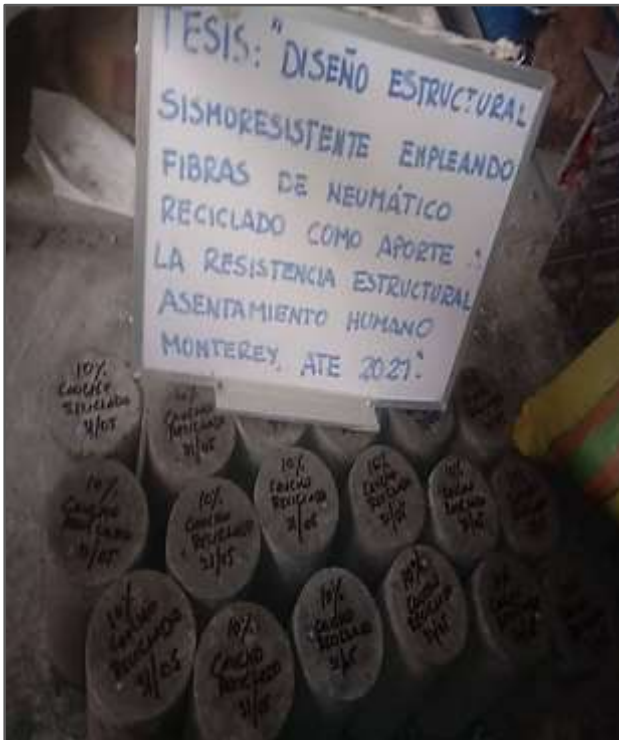 TESIS: "DISEÑO ESTRUCTURAL
SISMORESISTENTE EMPLEANDO
FIBRAS DE NEUMÁTICO
RECICLADO COMO APORTE
LA RESISTENCIA ESTRUCTURAL
ASENTAMIENTO HUMANO
MONTEREY, ATE 2021."
10%
CAUCHO
RECICLADO
31/05
10%
CAUCHO
RECICLADO
31/05
10%
CAUCHO
RECICLADO
31/05
10%
CAUCHO
RECICLADO
31/05
10%
CAUCHO
RECICLADO
31/05
10%
CAUCHO
RECICLADO
31/05
10%
CAUCHO
RECICLADO
31/05
10%
CAUCHO
RECICLADO
31/05
10%
CAUCHO
RECICLADO
31/05
10%
CAUCHO
RECICLADO
31/05